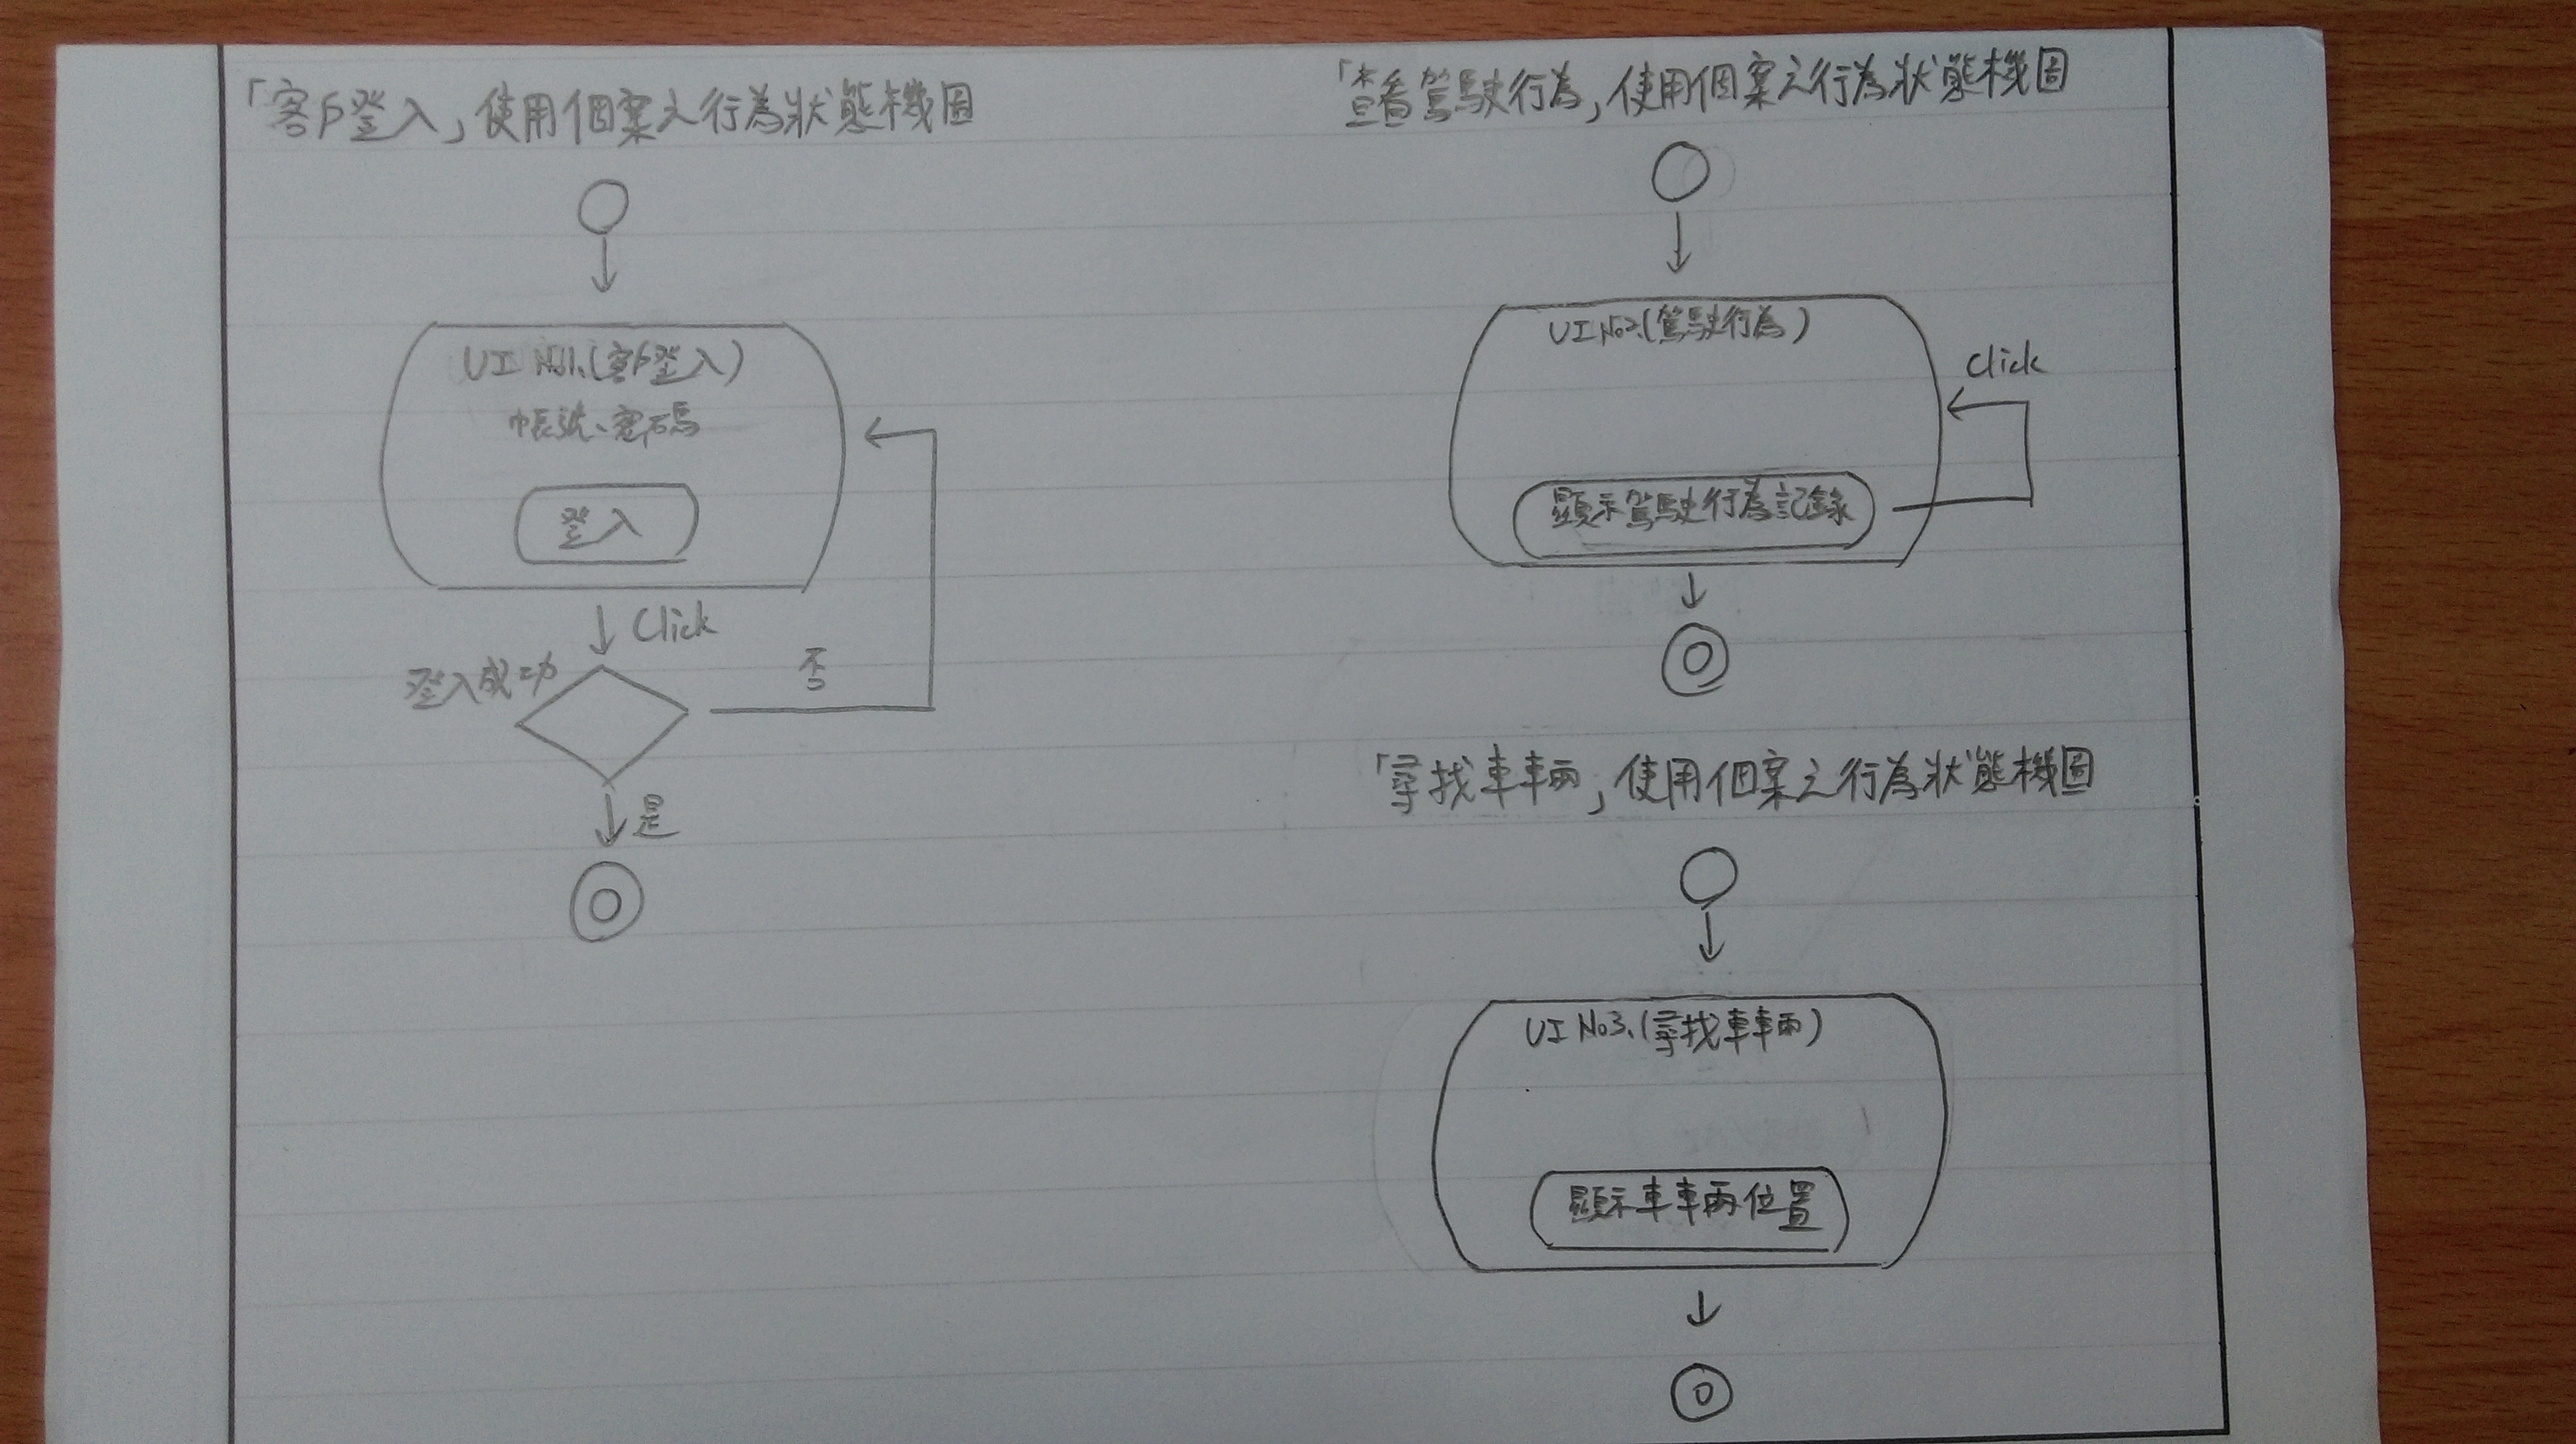 「客戶登入」使用個案之行為狀態機圖
UI No1.(客戶登入)
帳號、密碼
登入
Click
登入成功
否
是
「查看駕駛行為」使用個案之行為狀態機圖
UI No2.(駕駛行為)
Click
顯示駕駛行為記錄
「尋找車輛」使用個案之行為狀態機圖
UI No3.(尋找車輛)
顯示車輛位置